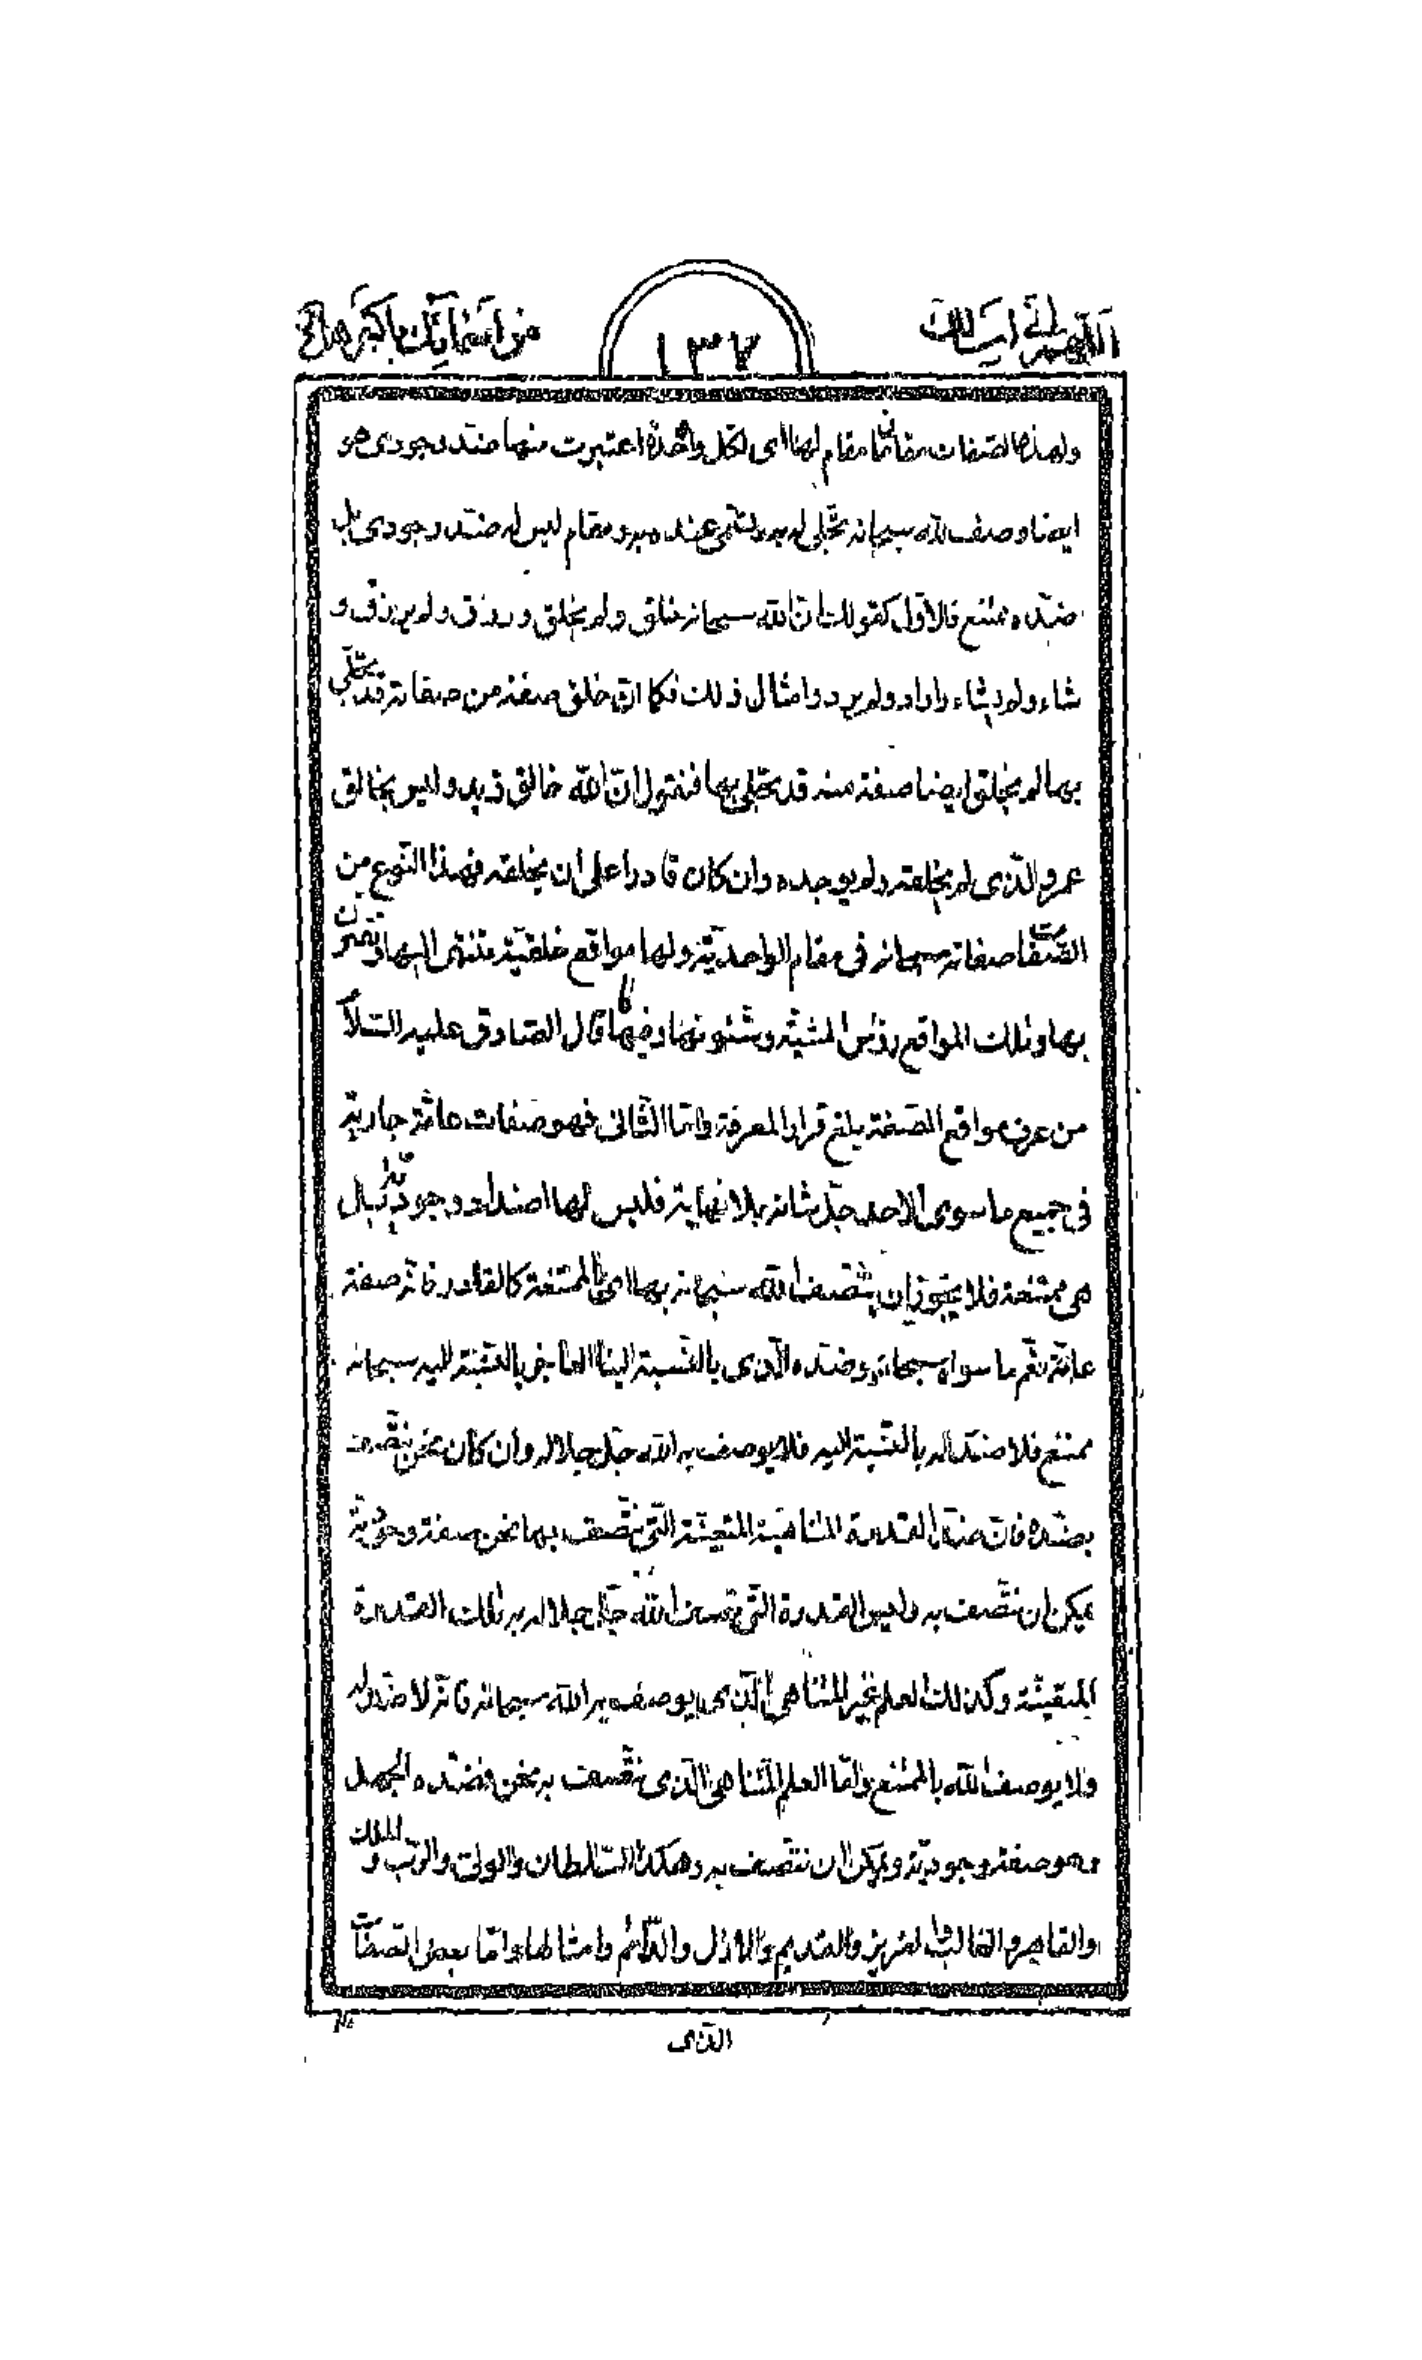 اللهم اني اسالك
١٣٧
من اسمائك باكبرها
ولهذه الصفات مقامان مقام لها اي لكل واحدة اعتبرت منها ضد وجودي هو
ايضا وصف لله سبحانه تجلى له به عند عبده ومقام ليس له ضد وجودي بل
ضده ممتنع فالاول كقولك ان الله سبحانه خلق ولم يخلق ورزق ولم يرزق و
شاء ولم يشاء واراد ولم يرد وامثال ذلك فكما ان خلق صفة من صفاته قد تجلى
بها لم يخلق ايضا صفة منه قد تجلى بها فنقول ان الله خالق زيد وليس بخالق
عمرو الذي لم يخلقه ولم يوجده وان كان قادرا على ان يخلقه فهذا النوع من
الصفات صفاته سبحانه في مقام الواحدية ولها مواقع خلقية تنتهي اليها وتقترن
بها وتلك المواقع رؤس المشية وشئونها وفيها قال الصادق عليه السلام
من عرف مواقع الصفة بلغ قرار المعرفة واما الثاني فهو صفات عامة جارية
في جميع ما سوى الاحد جل شانه بلا نهاية فليس لها اضداد وجودية بل
هي ممتنعة فلا يجوز ان يتصف الله سبحانه بها اي بالممتنعة كالقادر فانه صفة
عامة تعم ما سواه سبحانه وضده الذي بالنسبة الينا العاجز بالنسبة اليه سبحانه
ممتنع فلا ضد له بالنسبة اليه فلا يوصف به الله جل جلاله وان كان نحن نتصف
بضده فان ضد القدرة المتناهية المتعينة التي نتصف بها نحن صفة وجودية
يمكن ان نتصف به وليس القدرة التي توصف الله جل جلاله به تلك القدرة
المتعينة وكذلك العلم غير المتناهي الذي يوصف به الله سبحانه فانه لا ضد له
ولا يوصف الله بالممتنع واما العلم المتناهي الذي نتصف به نحن فضده الجهل
وهو صفة وجودية ويمكن ان نتصف به وهكذا السلطان والولي والرب والملك
والقاهر والغالب والعزيز والقديم والازل والدائم وامثالها واما بعض الصفات
الذي